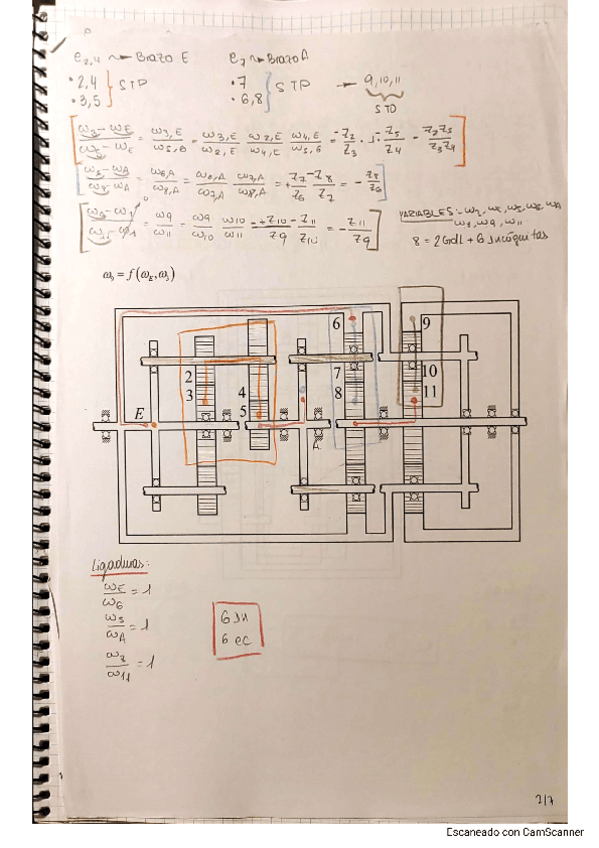 e2,4 ~> Brazo E    e7 ~> Brazo A
• 2,4 } STP    • 7 } STP → 9,10,11
• 3,5    • 6,8    STD
[ (ω3 - ωE)/(ω5 - ωE) = ω3,E/ω5,E = ω3,E/ω2,E · ω2,E/ω4,E · ω4,E/ω5,E = -Z2/Z3 · 1 · -Z5/Z4 = Z2Z5/Z3Z4 ]
[ (ω6 - ωA)/(ω8 - ωA) = ω6,A/ω8,A = ω6,A/ω7,A · ω7,A/ω8,A = +Z7/Z6 · -Z8/Z7 = -Z8/Z6 ]
[ ω9/ω11 = ω9/ω10 · ω10/ω11 = +Z10/Z9 · -Z11/Z10 = -Z11/Z9 ]
VARIABLES:
8 = 2Gdl + 6 Incógnitas
ω9 = f(ωE, ω3)
6
9
2
3
4
5
7
8
10
11
E
A
Ligaduras:
ωE/ω6 = 1
ω5/ωA = 1
ω8/ω11 = 1
6 In
6 ec
2/7
Escaneado con CamScanner